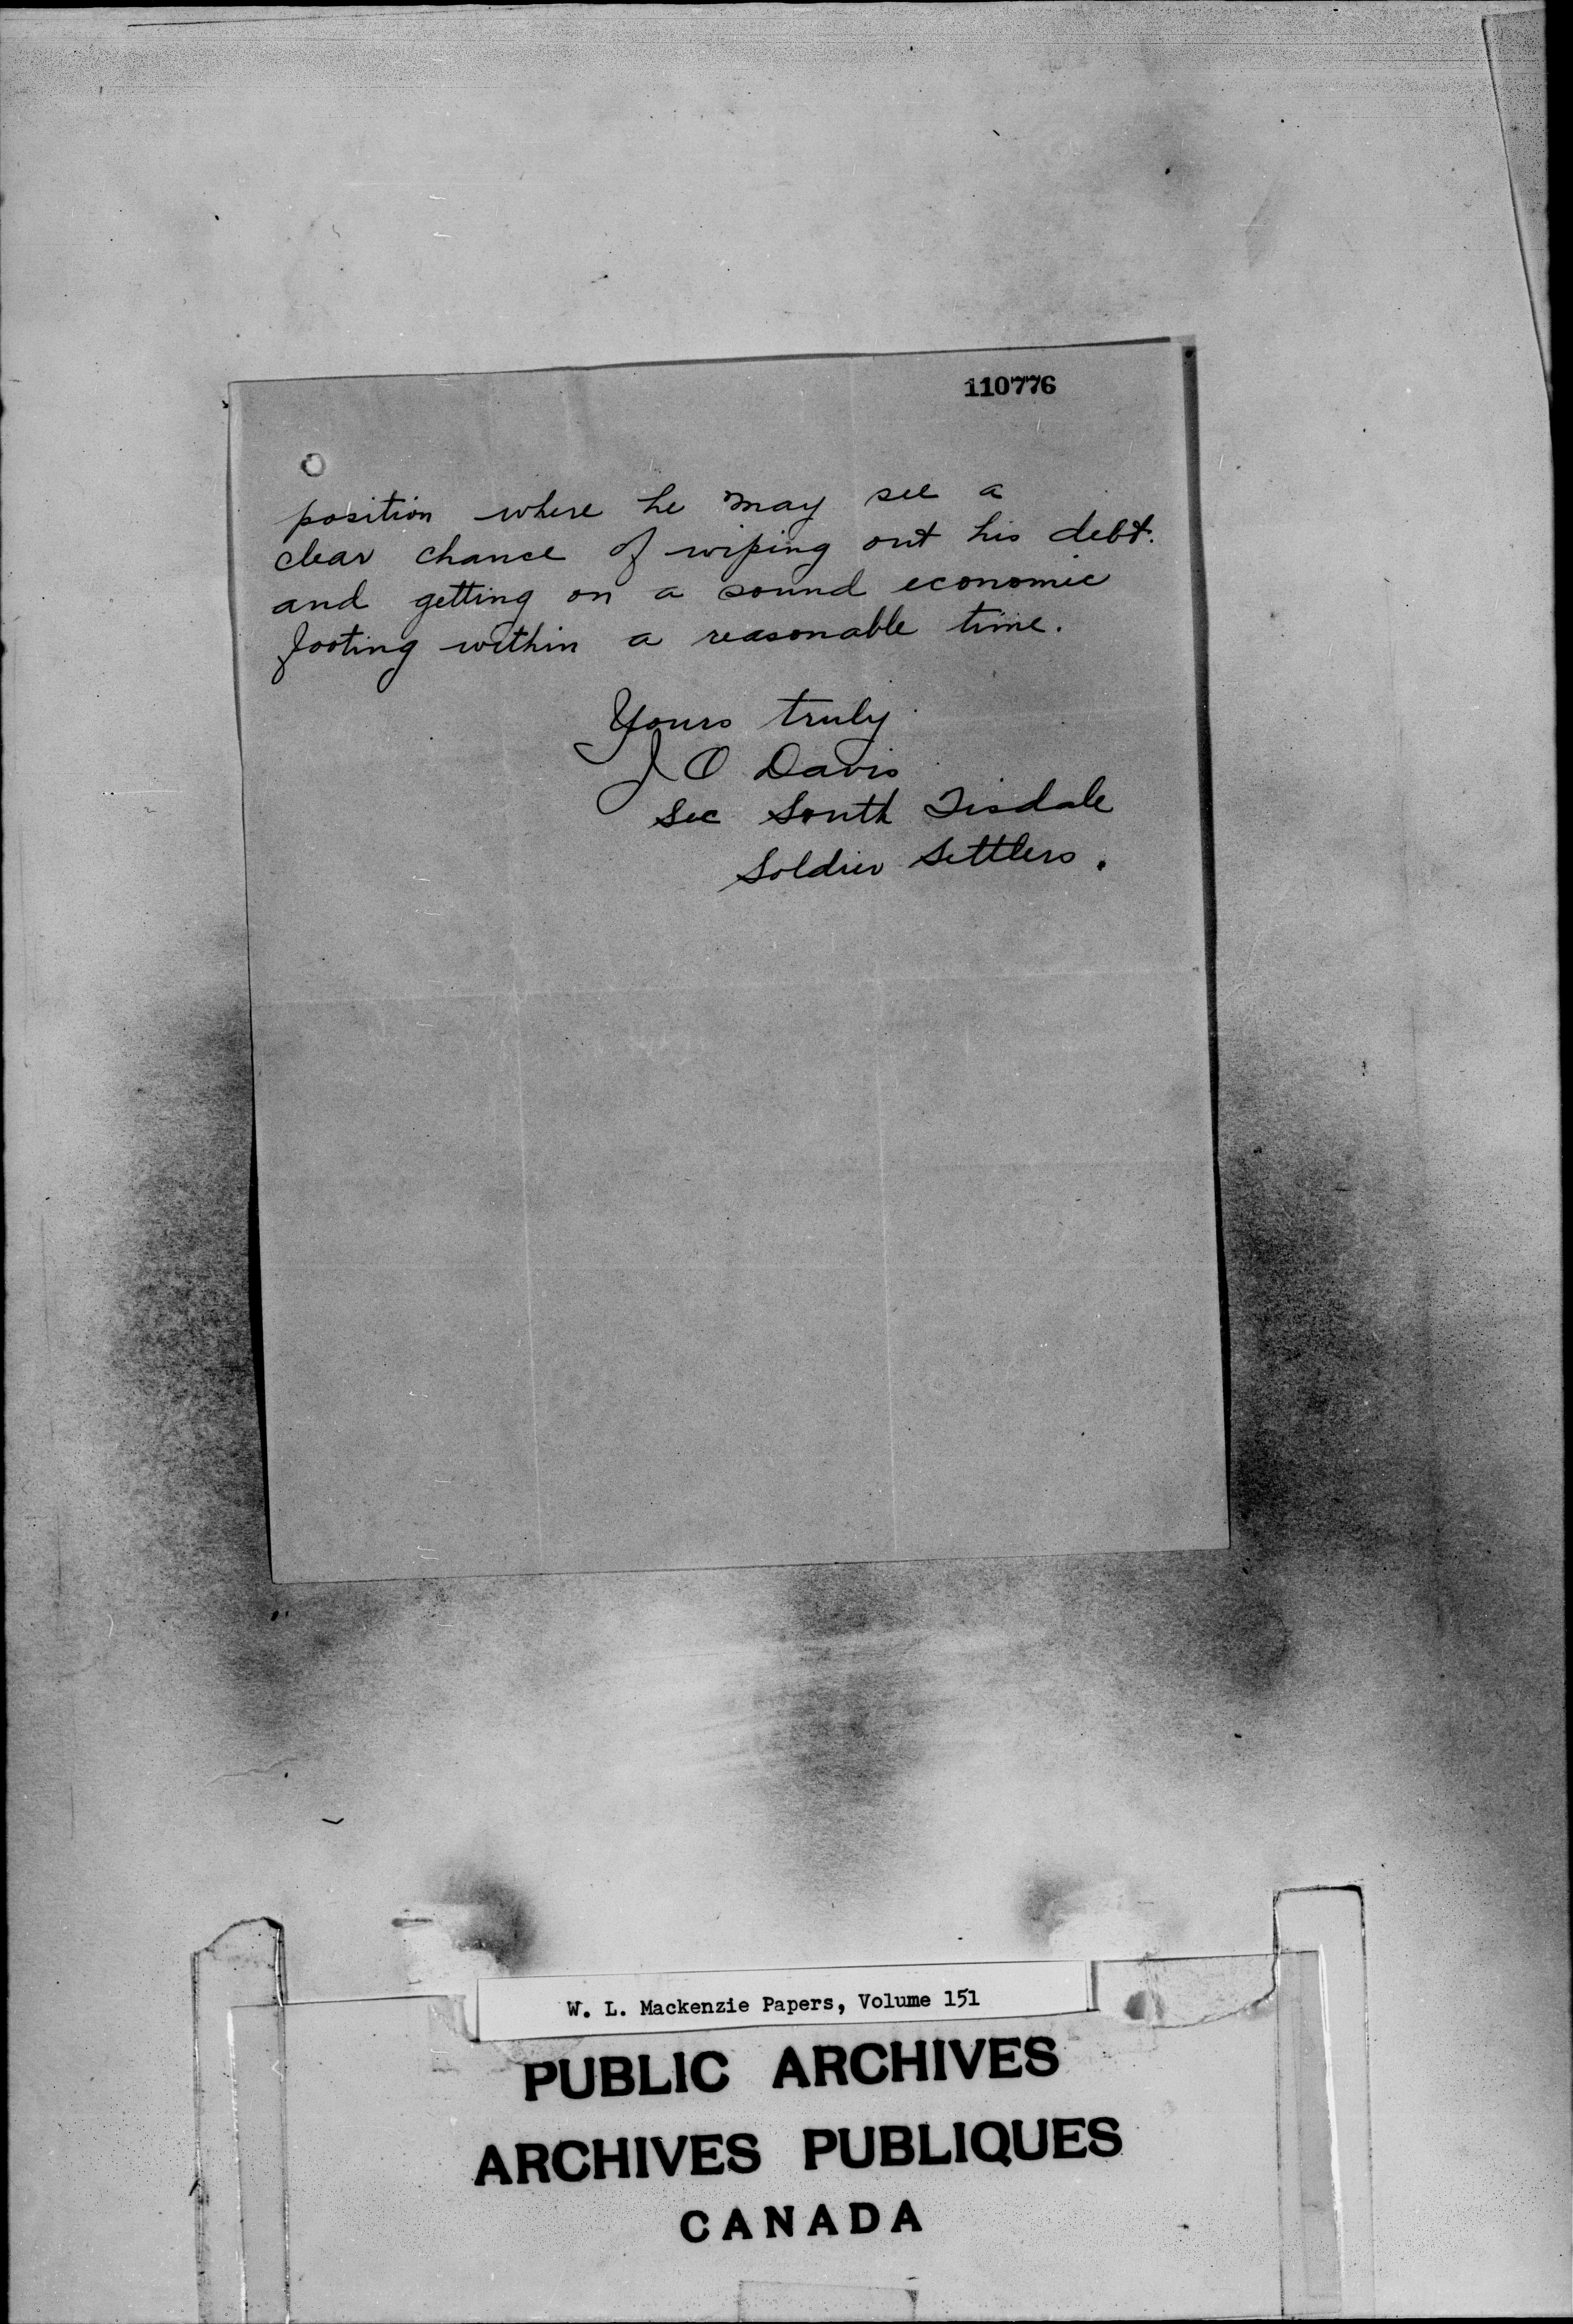 110776
position where he may see a
clear chance of wiping out his debt.
and getting on a sound economic
footing within a reasonable time.
Yours truly
J O Davis
Sec South Tisdale
Soldier Settlers.
W. L. Mackenzie Papers, Volume 151
PUBLIC ARCHIVES
ARCHIVES PUBLIQUES
CANADA